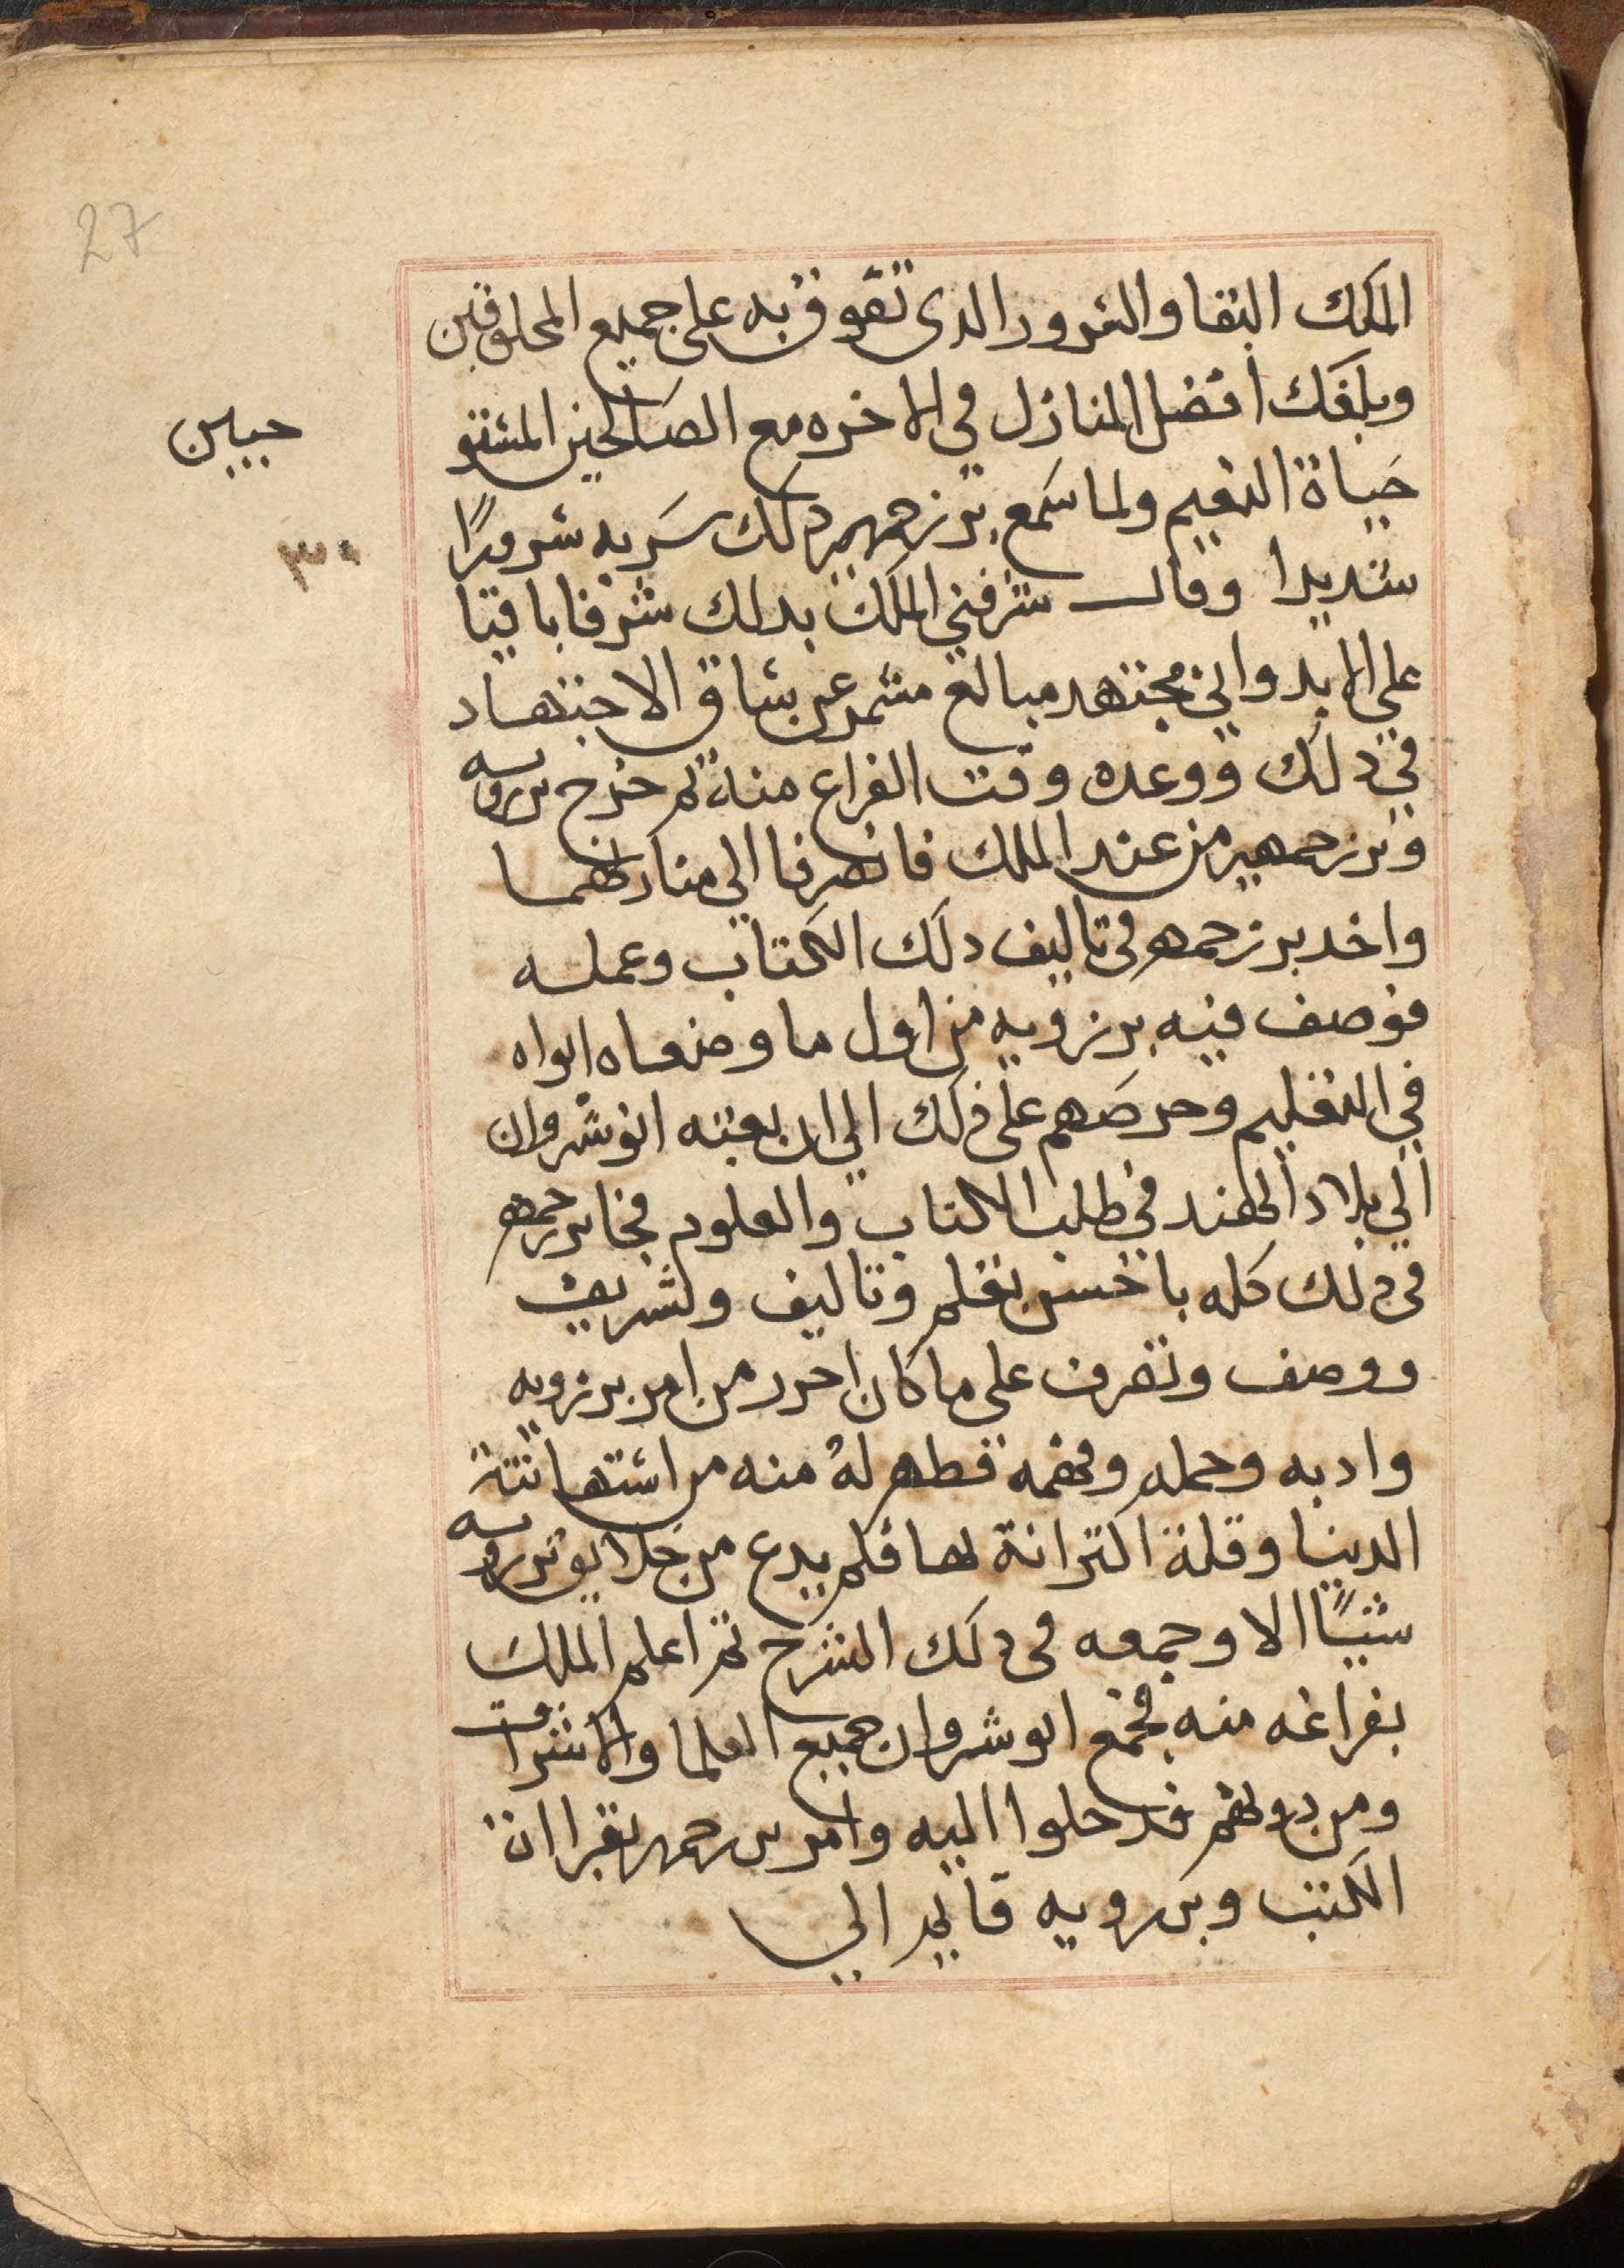 27
الملك البقا والسرور الدى تفوق به على جميع المخلوقين
وبلغك افضل المنازل في الاخره مع الصالحين المستو
حبيبن
حياة النعيم ولما سمع برزجمهير دلك سر به سرورًا
٣٠
شديدا وقال شرفني الملك بدلك شرفا باقيا
علي الابد واني مجتهد مبالغ مشمر عن ساق الاجتهاد
في دلك ووعده وقت الفراع منه ثم خرج برزويه
وبرزجمهير من عند الملك فانصرفا الي منازلهما
واخد برزجمهر في تاليف دلك الكتاب وعمله
فوصف فيه برزويه من اول ما وضعاه ابواه
في التعليم وحرصهم على دلك الي ان بعثه انوشروان
الي بلاد الهند في طلب الكتاب والعلوم فجا برزجمهر
في ذلك كله باحسن نظم وتاليف وتشريف
ووصف وتصرف علي ما كان احرر من امر برزويه
وادبه وحمله وفهمه فطهر له منه من استهانته
الدنيا وقلة اكتراثه لها فلم يدع من خلايق برزويه
شيًا الا وجمعه في دلك الشرح ثم اعلم الملك
بفراغه منه فجمع انوشروان جميع العلما والاشراف
ومن دونهم فدخلوا اليه وامر برزجمهر بقراات
الكتب وبرزويه قايم الي